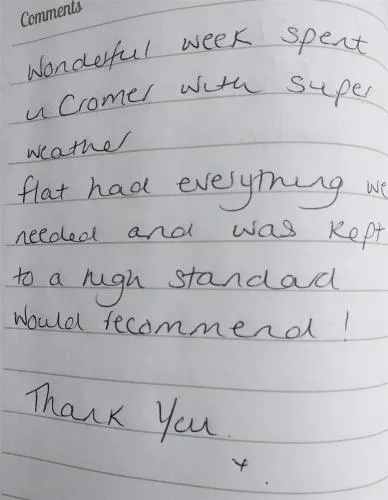 Comments
Wonderful week spent
in Cromer with super
weather
flat had everything we
needed and was kept
to a high standard
would recommend !
Thank you.
x.